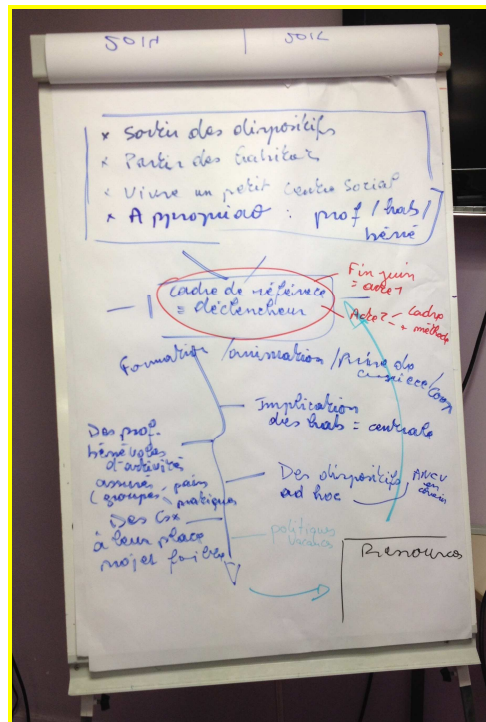 SOIN | SOIL
× Sortir des dispositifs
× Partir des habitants
× Vivre un petit Centre Social
× Appropriat° : prof / hab /
béné
Cadre de référence
= déclencheur
Fin juin
= acte 1
Acte 2 = Cadre
+ méthode
Formation / animation / prise de
conscience / Comm
Implication
des hab = centrale
Des prof.
bénévoles
d'activité
assurés, pairs
(groupes, pratiques
Des dispositifs
ad hoc
ANCV
en
Des Csx
à leur place
projet faible
politiques
vacances
Ressources